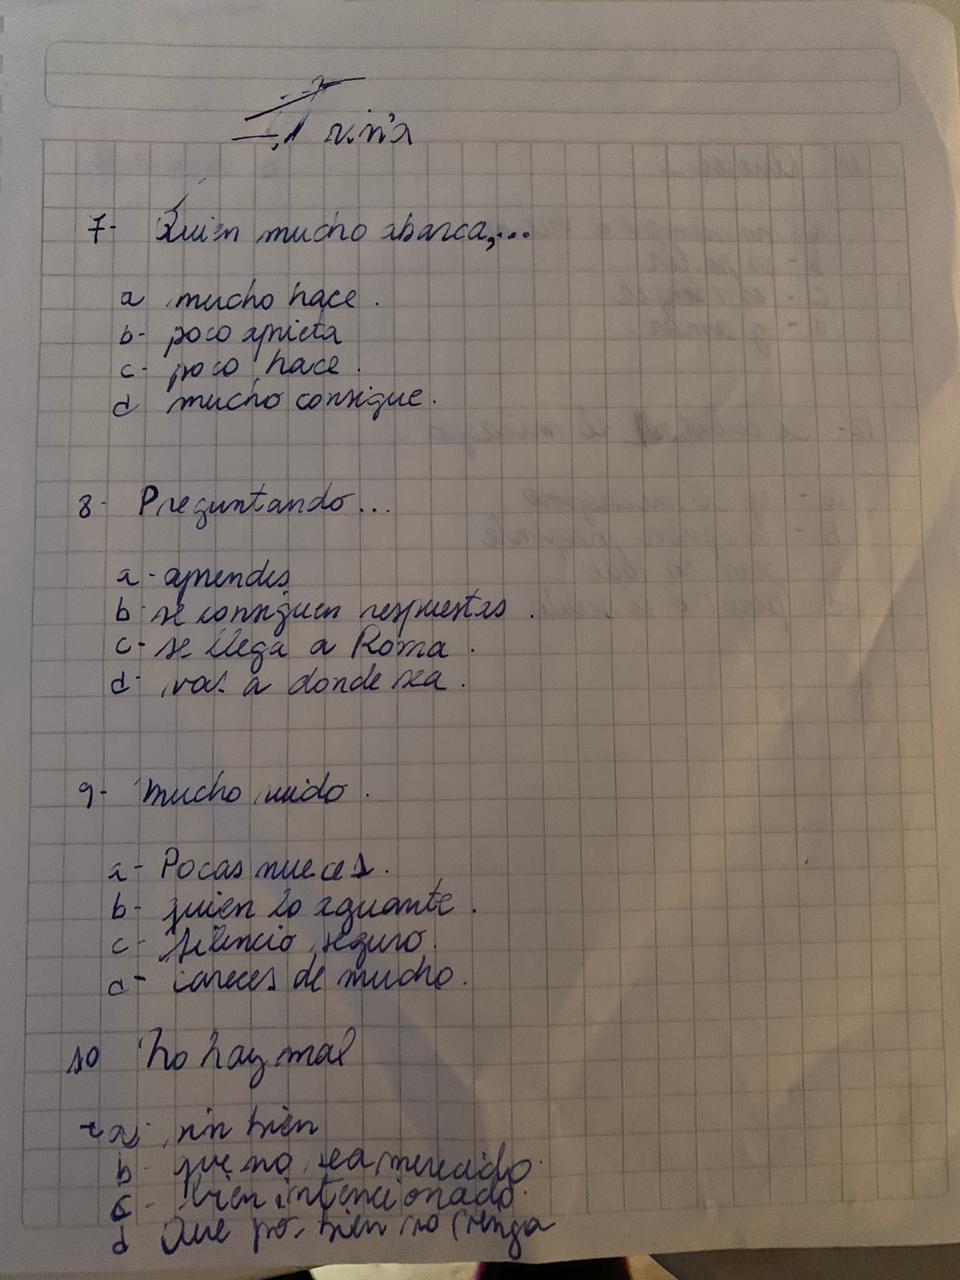 7- Quien mucho abarca,...
a mucho hace.
b- poco aprieta
c- poco hace.
d mucho consigue.
8- Preguntando...
a- aprendes
b- se consiguen respuestas.
c- se llega a Roma.
d- vas a donde sea.
9- Mucho ruido.
a- Pocas nueces.
b- quien lo aguante.
c- silencio seguro.
d- careces de mucho.
10 No hay mal
a- sin bien
b- que no sea merecido.
c- bien intencionado.
d Que por bien no venga